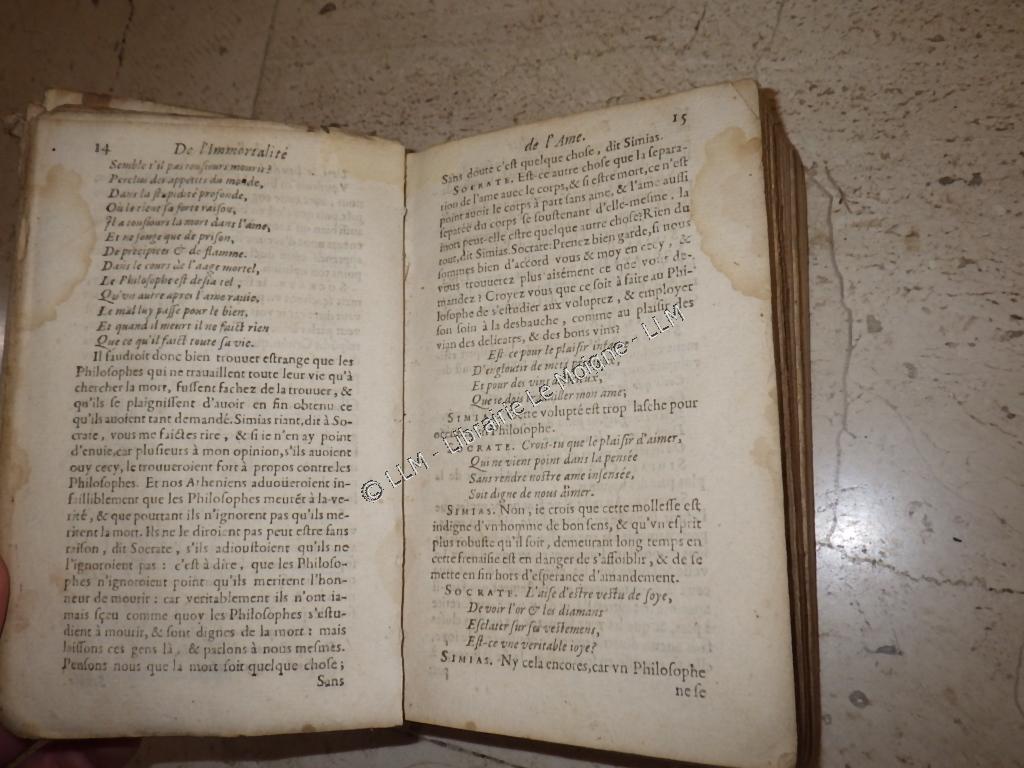 14 De l'Immortalité
Semble t'il pas tousiours mourir?
Perclus des appetits du monde,
Dans la stupidité profonde,
Où le tient sa forte raison,
Il a tousiours la mort dans l'ame,
Et ne songe que de prison,
De precipices & de flamme.
Dans le cours de l'aage mortel,
Le Philosophe est desia tel,
Qu'vn autre apres l'ame rauie,
Le mal luy passe pour le bien,
Et quand il meurt il ne faict rien
Que ce qu'il faict toute sa vie.
Il faudroit donc bien trouuer estrange que les
Philosophes qui ne trauaillent toute leur vie qu'à
chercher la mort, fussent fachez de la trouuer, &
qu'ils se plaignissent d'auoir en fin obtenu ce
qu'ils auoient tant demandé. Simias riant, dit à So-
crate, vous me faictes rire, & si ie n'en ay point
d'enuie, car plusieurs à mon opinion, s'ils auoient
ouy cecy, le trouueroient fort à propos contre les
Philosophes. Et nos Atheniens aduoüeroient in-
failliblement que les Philosophes meurét à la ve-
rité, & que pourtant ils n'ignorent pas qu'ils me-
ritent la mort. Ils ne le diroient pas peut estre sans
raison, dit Socrate, s'ils adioustoient qu'ils ne
l'ignoroient pas : c'est à dire, que les Philoso-
phes n'ignoroient point qu'ils meritent l'hon-
neur de mourir : car veritablement ils n'ont ia-
mais sçeu comme quoy les Philosophes s'estu-
dient à mourir, & sont dignes de la mort : mais
laissons ces gens là, & parlons à nous mesmes.
Pensons nous que la mort soit quelque chose;
Sans
de l'Ame. 15
Sans doute c'est quelque chose, dit Simias.
SOCRATE. Est-ce autre chose que la separa-
tion de l'ame auec le corps, & si estre mort, ce n'est
point auoir le corps à part sans ame, & l'ame aussi
separée du corps se soustenant d'elle-mesme, la
mort peut-elle estre quelque autre chose? Rien du
tout, dit Simias. Socrate: Prenez bien garde, si nous
sommes bien d'accord vous & moy en cecy, &
vous trouuerez plus aisément ce que vous de-
mandez? Croyez vous que ce soit à faire au Phi-
losophe de s'estudier aux voluptez, & employer
son soin à la desbauche, comme au plaisir des
viandes delicates, & des bons vins?
Est-ce pour le plaisir
D'engloutir de mets
Et pour des vins
Que ie dois mon ame;
SIMIAS. Cette volupté est trop lasche pour
Philosophe.
SOCRATE. Crois-tu que le plaisir d'aimer,
Qui ne vient point dans la pensée
Sans rendre nostre ame insensée,
Soit digne de nous aimer.
SIMIAS. Non, ie crois que cette mollesse est
indigne d'vn homme de bon sens, & qu'vn esprit
plus robuste qu'il soit, demeurant long temps en
cette frenaisie est en danger de s'affoiblir, & de se
mettre en fin hors d'esperance d'amandement.
SOCRATE. L'aise d'estre vestu de soye,
De voir l'or & les diamans
Esclater sur ses vestemens,
Est-ce vne veritable ioye?
SIMIAS. Ny cela encores, car vn Philosophe
ne se
© LLM - Librairie Le Moigne - LLM